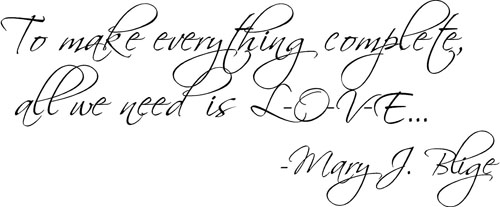 To make everything complete,
all we need is L-O-V-E...
-Mary J. Blige